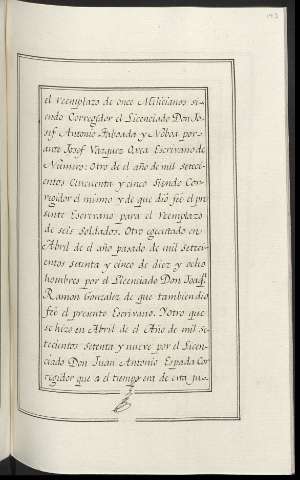 143
el reemplazo de once Milicianos si-
endo Corregidor el Licenciado Don Jo-
sef Antonio Taboada y Nóboa por
ante Josef Vazquez Varea Escrivano de
Número: Otro de el año de mil setecí-
entos Cincuenta y cinco siendo Cor-
regidor el mismo y de que dió feé el pre
sente Escrivano para el reemplazo
de seis Soldados. Otro egecutado en
Abril de el año pasado de mil seteci-
entos setenta y cinco de diez y ocho
hombres por el Licenciado Don Joaqn.
Ramon Gonzalez de que tambien dió
feé el presente Escrivano. Y otro que
se hizo en Abril de el Año de mil se-
tecientos setenta y nueve por el Licen-
ciado Don Juan Antonio Espada Cor
regidor que a el tiempo era de esta Ju-